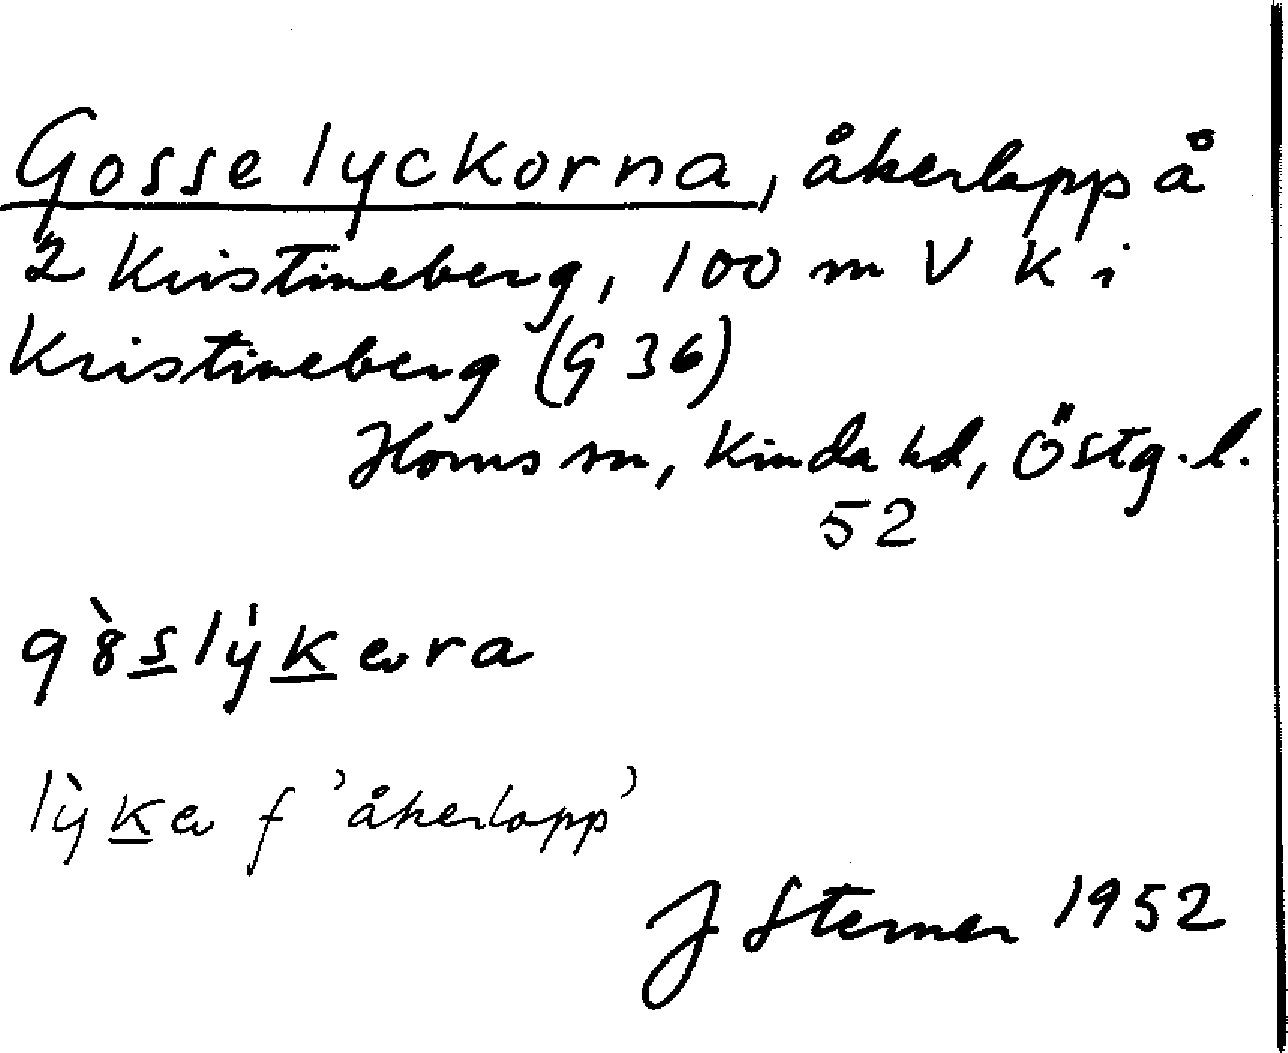 Gosselyckorna, åkerlapp å
2 Kristineberg, 100 m V K i
Kristineberg (G 36)
Horns sn, Kinda hd, Östg. l.
52
gòslýkɐra
lỳkɐ f 'åkerlapp'
J Sterner 1952